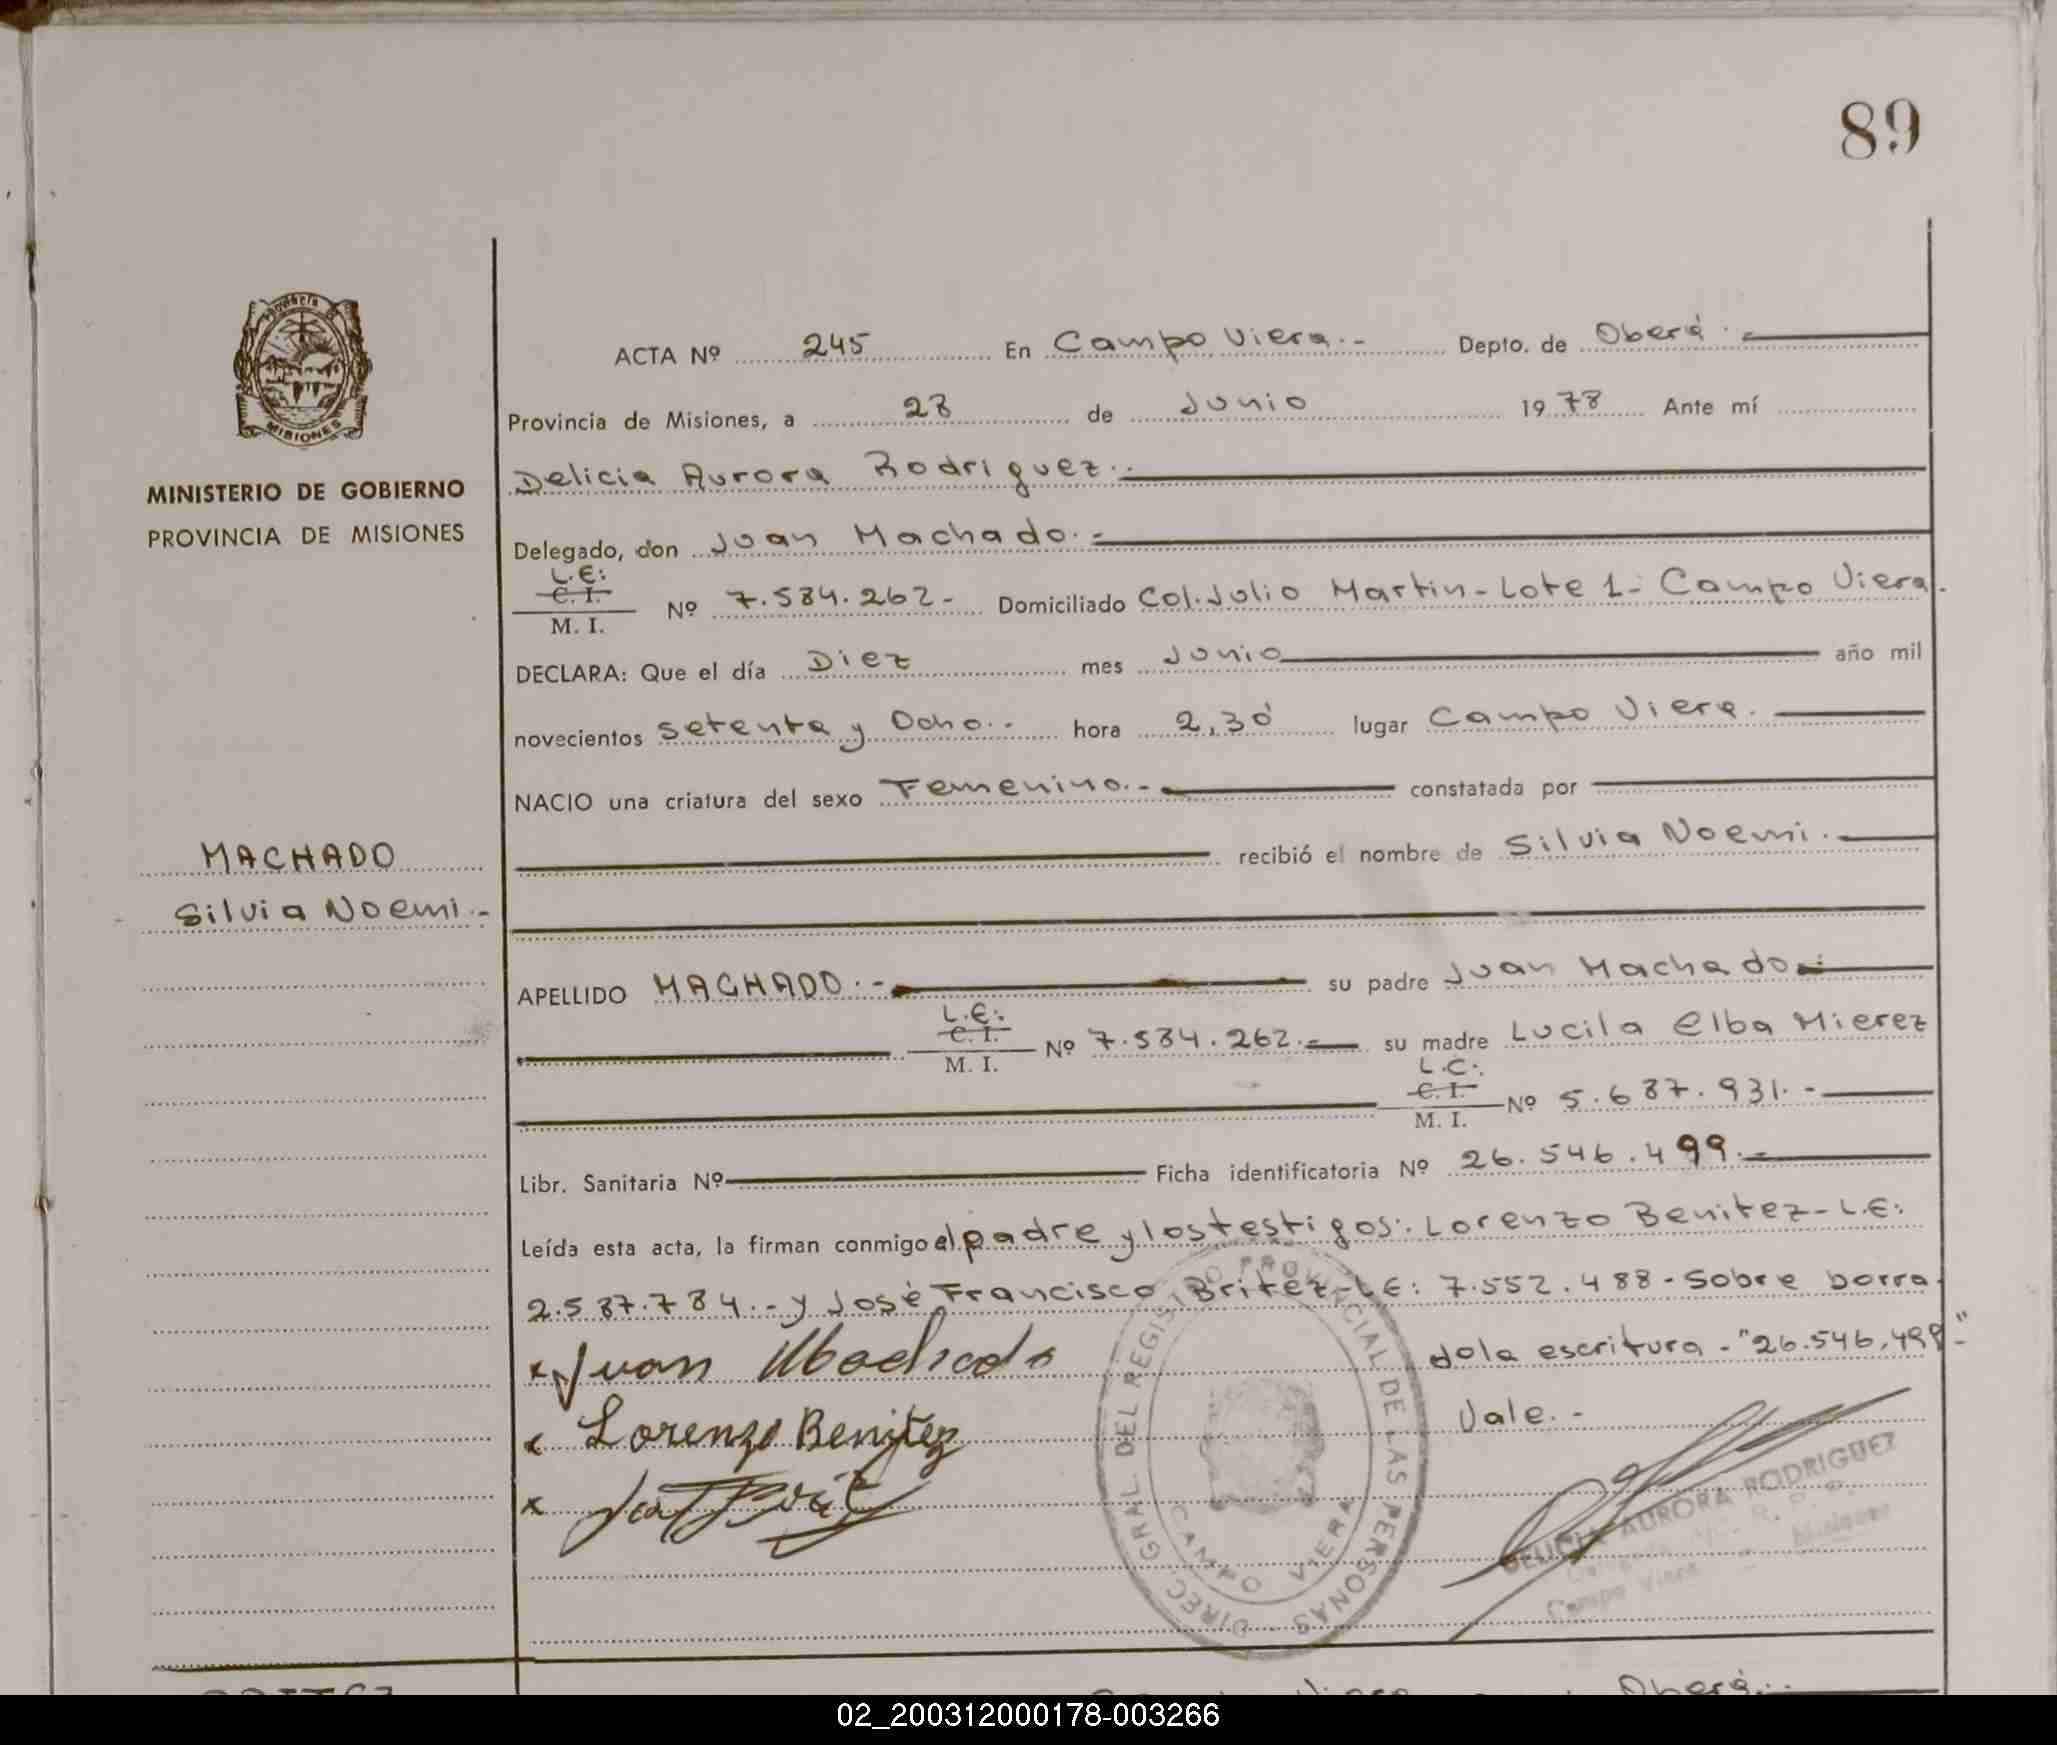 89
ACTA Nº 245 En Campo Viera.- Depto. de Oberá.-
Provincia de Misiones, a 28 de Junio 1978 Ante mí
Delicia Aurora Rodriguez.-
MINISTERIO DE GOBIERNO
PROVINCIA DE MISIONES
Delegado, don Juan Machado.-
L.E:
C. I.
M. I.
Nº 7.584.262- Domiciliado Col. Julio Martin-Lote 1- Campo Viera.
DECLARA: Que el día Diez mes Junio año mil
novecientos setenta y Ocho.- hora 2,30 lugar Campo Viera.
NACIO una criatura del sexo Femenino.- constatada por
MACHADO
Silvia Noemi.-
recibió el nombre de Silvia Noemi.-
APELLIDO MACHADO.- su padre Juan Machado.-
L.E:
C. I.
M. I.
Nº 7.584.262.- su madre Lucila Elba Mierez
L.C:
C. I.
M. I.
Nº 5.687.931.-
Libr. Sanitaria Nº Ficha identificatoria Nº 26.546.499.-
Leída esta acta, la firman conmigo el padre y los testigos: Lorenzo Benitez-L.E:
2.587.784.- y José Francisco Britez-LE: 7.552.488-Sobre borra
dola escritura-"26.546.499"-
Vale.-
x Juan Machado
x Lorenzo Benitez
x
DIREC. GRAL. DEL REGISTRO PROVINCIAL DE LAS PERSONAS
CAMPO VIERA
DELICIA AURORA RODRIGUEZ
Campo Viera - Misiones
Campo Viera Oberá.-
02_200312000178-003266